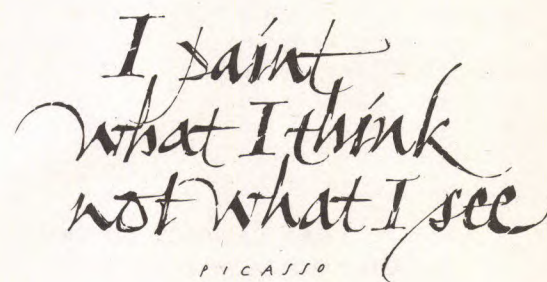 I paint
what I think
not what I see
PICASSO